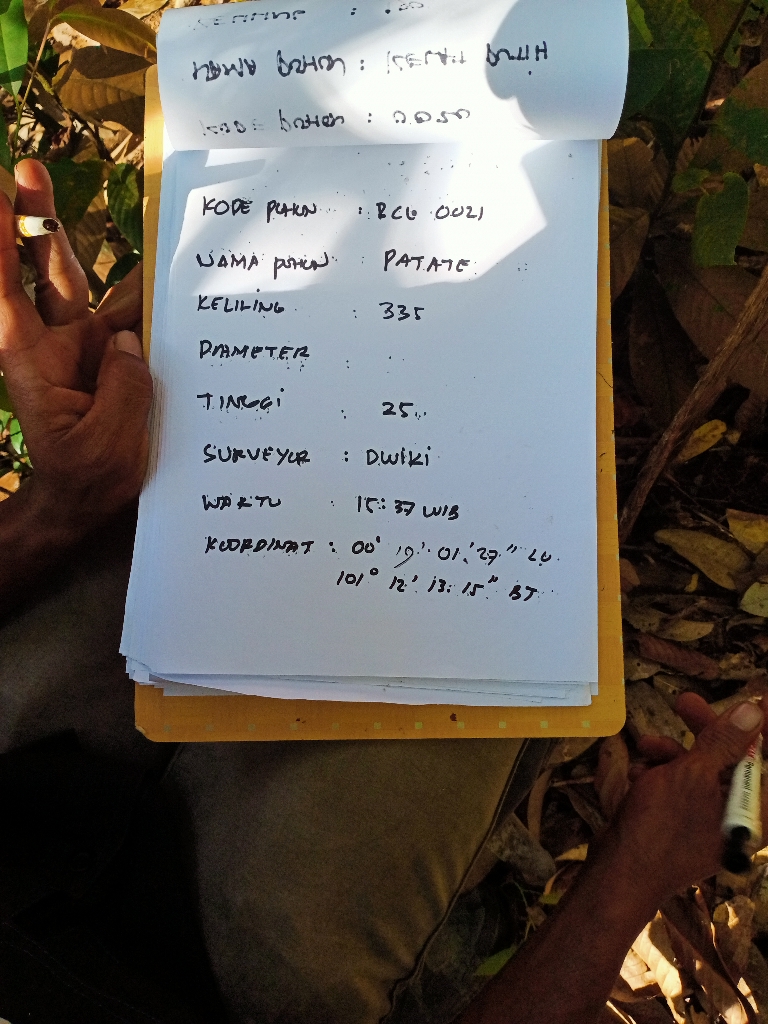 NAMA POHON :
KODE POHON :
KODE POHON : BCL 0021
NAMA POHON : PATATE
KELILING : 335
DIAMETER :
TINGGI : 25
SURVEYOR : DWIKI
WAKTU : 15:37 WIB
KOORDINAT : 00° 19' 01.'27" LU
101° 12' 13.15" BT